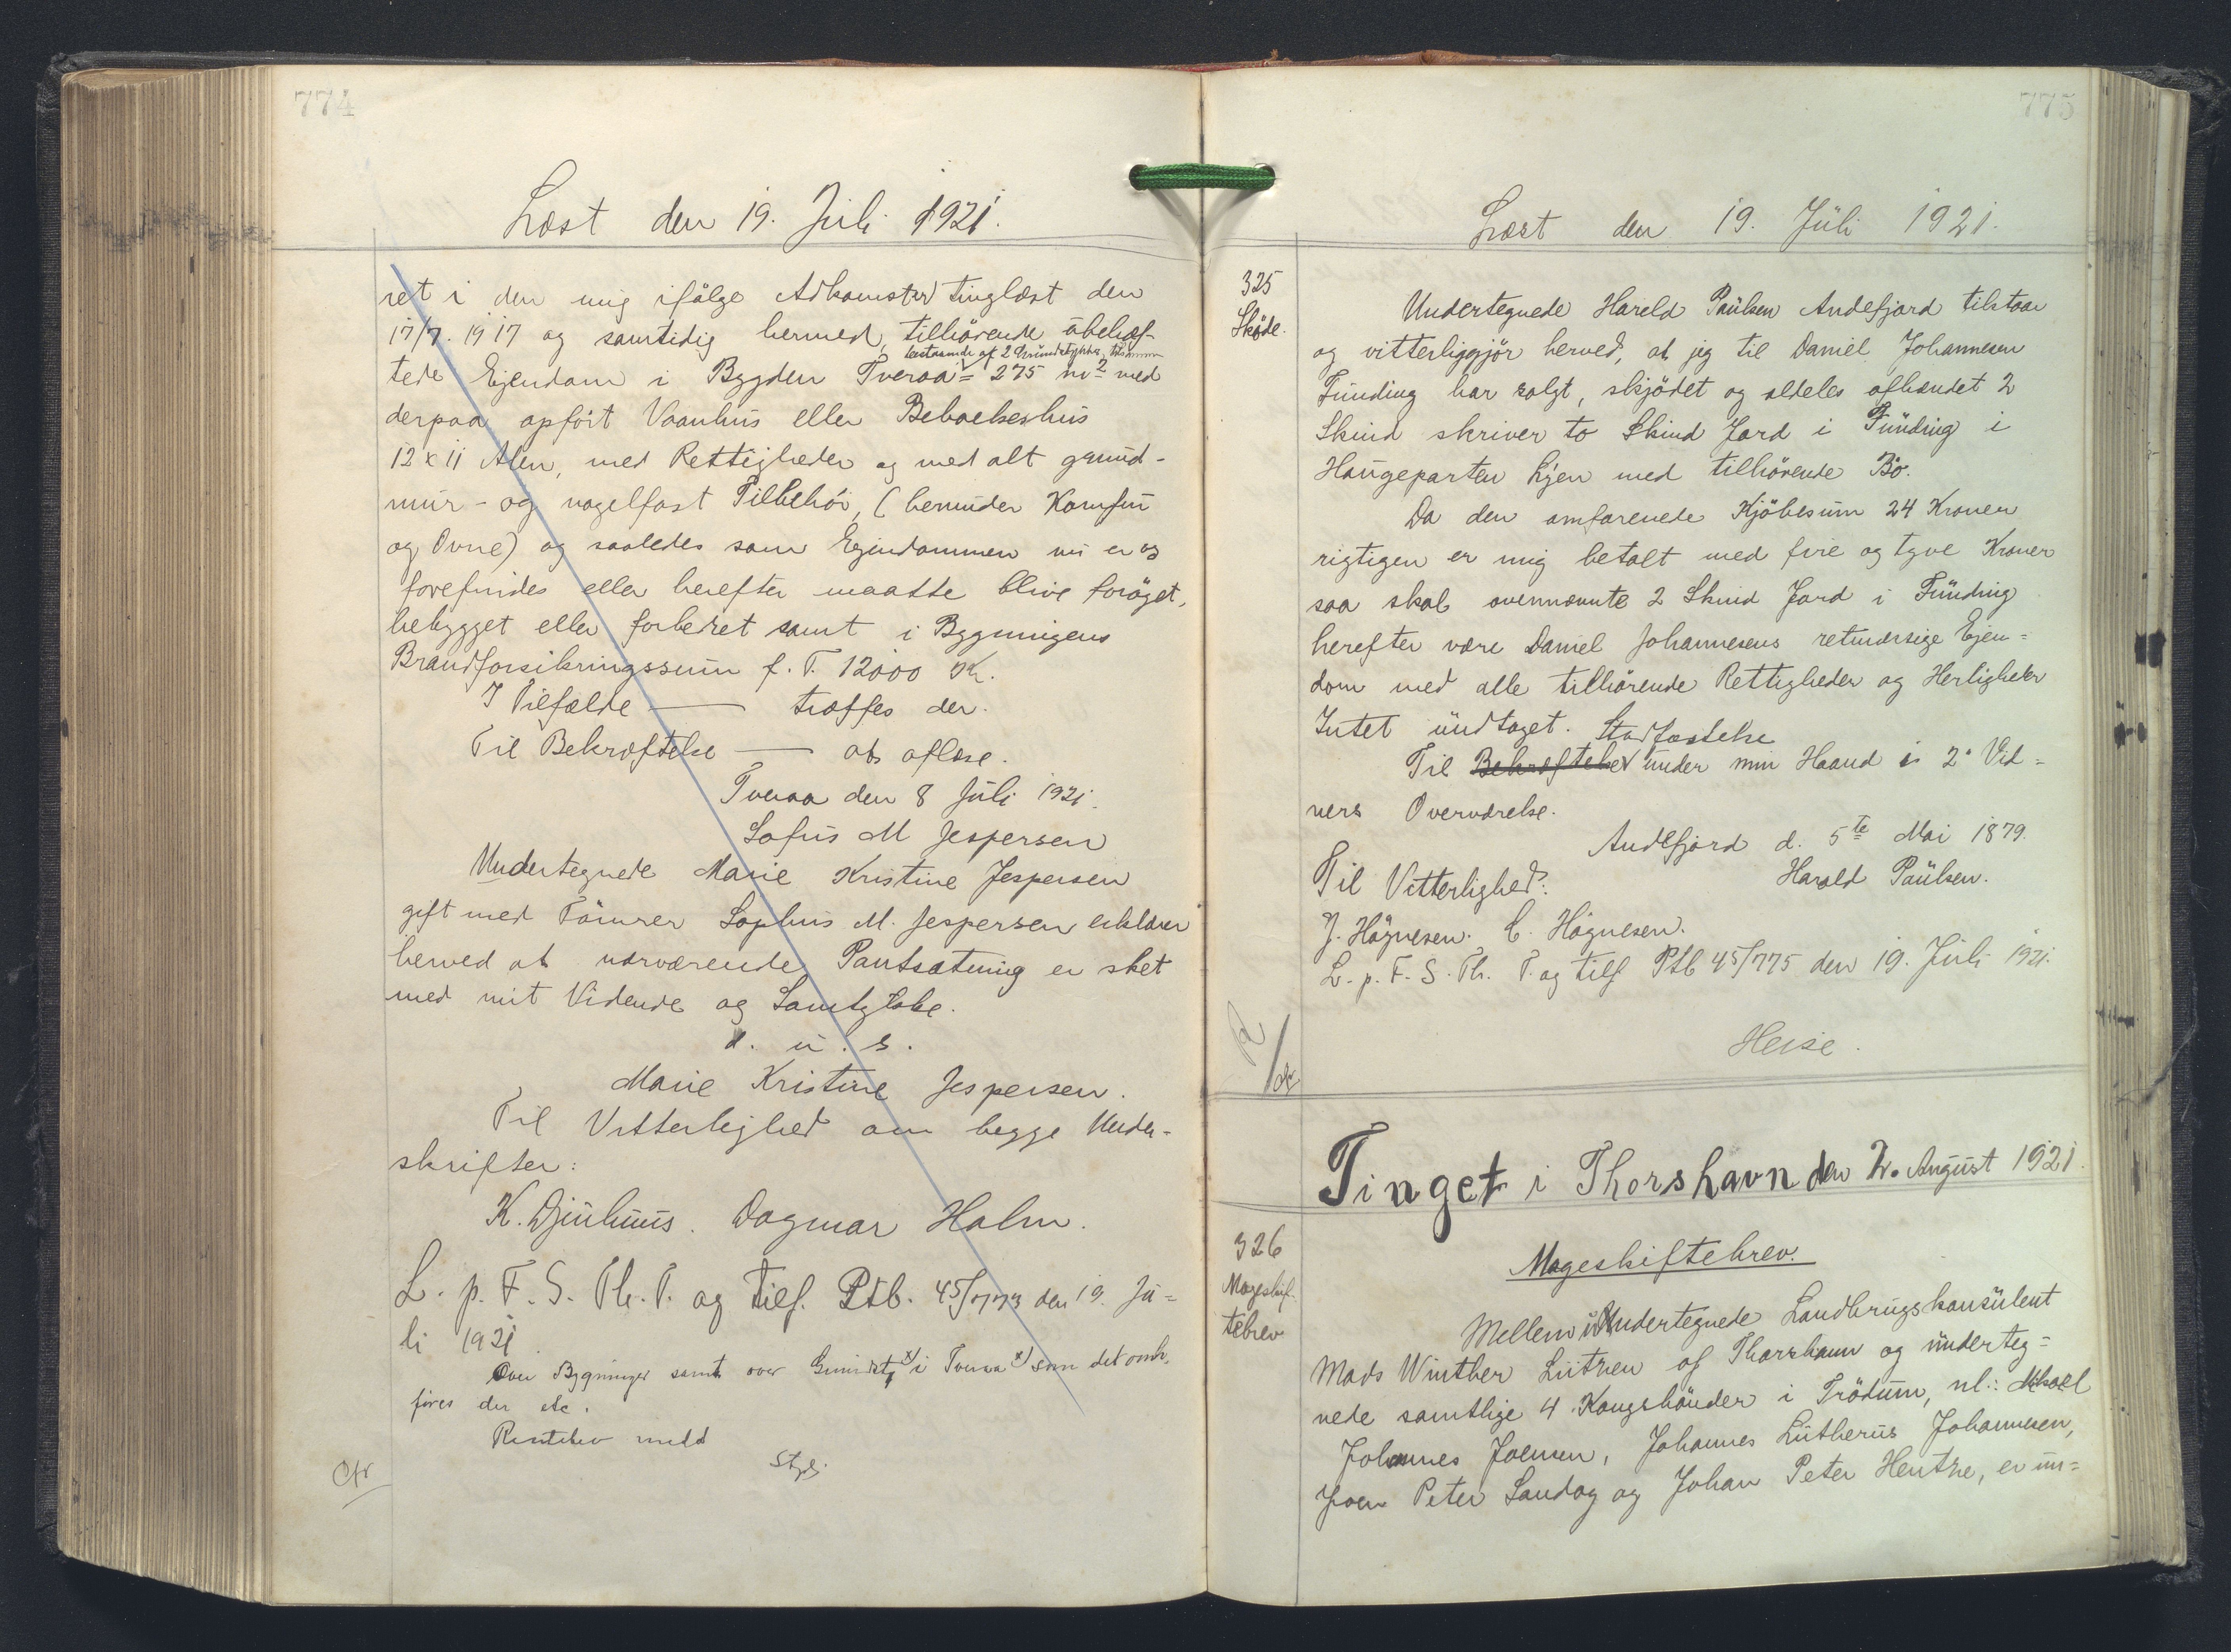 774
Læst den 19. Juli 1921.
ret i den mig ifölge Adkomster tinglæst den
17/7. 1917 og samtidig hermed, tilhörende ubehæf-
bestaaende af 2 Grundstykker, tilsammen
tede Ejendom i Bygden Tveraa = 275 m² med
derpaa opfört Vaanhus eller Beboelseshus
12 x 11 Alen, med Rettigheder og med alt grund-
mur- og nagelfast Tilbehör, (herunder Komfur
og Ovne) og saaledes som Ejendommen nu er og
forefindes eller herefter maatte blive foröget,
bebygget eller forbedret samt i Bygningens
Brandforsikringssum p. T. 12000 Kr.
I Tilfælde — træffes der.
Til Bekræftelse — at aflæse.
Tveraa den 8 Juli 1921.
Sofus M Jespersen
Undertegnede Marie Kristine Jespersen
gift med Tömrer Sophus M. Jespersen erklærer
herved at nærværende Pantsætning er sket
med mit Vidende og Samtykke.
d. u. s.
Marie Kristine Jespersen.
Til Vitterlighed om begge Under-
skrifter:
K. Djurhuus. Dagmar Holm.
L. p. F. S. Th. T. og tilf. Ptb. 45/773 den 19. Ju=
li 1921.
Over Bygninger samt over Grundst. x) i Tveraa x) som det omh.
föres der etc.
Cfr
775
Læst den 19. Juli 1921.
325
Sköde.
Undertegnede Harald Paulsen Andefjord tilstaar
og vitterliggjör herved, at jeg til Daniel Johannesen
Funding har solgt, skjödet og aldeles afhændet 2
Skind skriver to Skind Jord i Funding i
Haugeparten Ljen med tilhörende Bö.
Da den omforenede Kjöbesum 24 Kroner
rigtigen er mig betalt med fire og tyve Kroner
saa skal ovennævnte 2 Skind Jord i Funding
herefter være Daniel Johannesens retmæssige Ejen=
dom med alle tilhörende Rettigheder og Herligheder
Intet undtaget. Stadfæstelse
Til Bekræftelse under min Haand i 2 Vid=
ners Overværelse.
Andefjord d. 5te Mai 1879.
Til Vitterlighed: Harald Paulsen.
J. Högnesen. C. Högnesen.
L. p. F. S. Th. T. og tilf Ptb 45/775 den 19. Juli 1921.
Heise.
Tinget i Thorshavn den 2. August 1921.
326
Mageskif-
tebrev
Mageskiftebrev.
Mellem Undertegnede Landbrugskonsulent
Mads Winther Lützen af Thorshavn og underteg=
nede samtlige 4 Kongsbönder i Trödum, nl.: Mikael
Johannes Joensen, Johannes Lutherus Johannesen,
Joen Peter Sandoy og Johan Peter Hentze, er un=